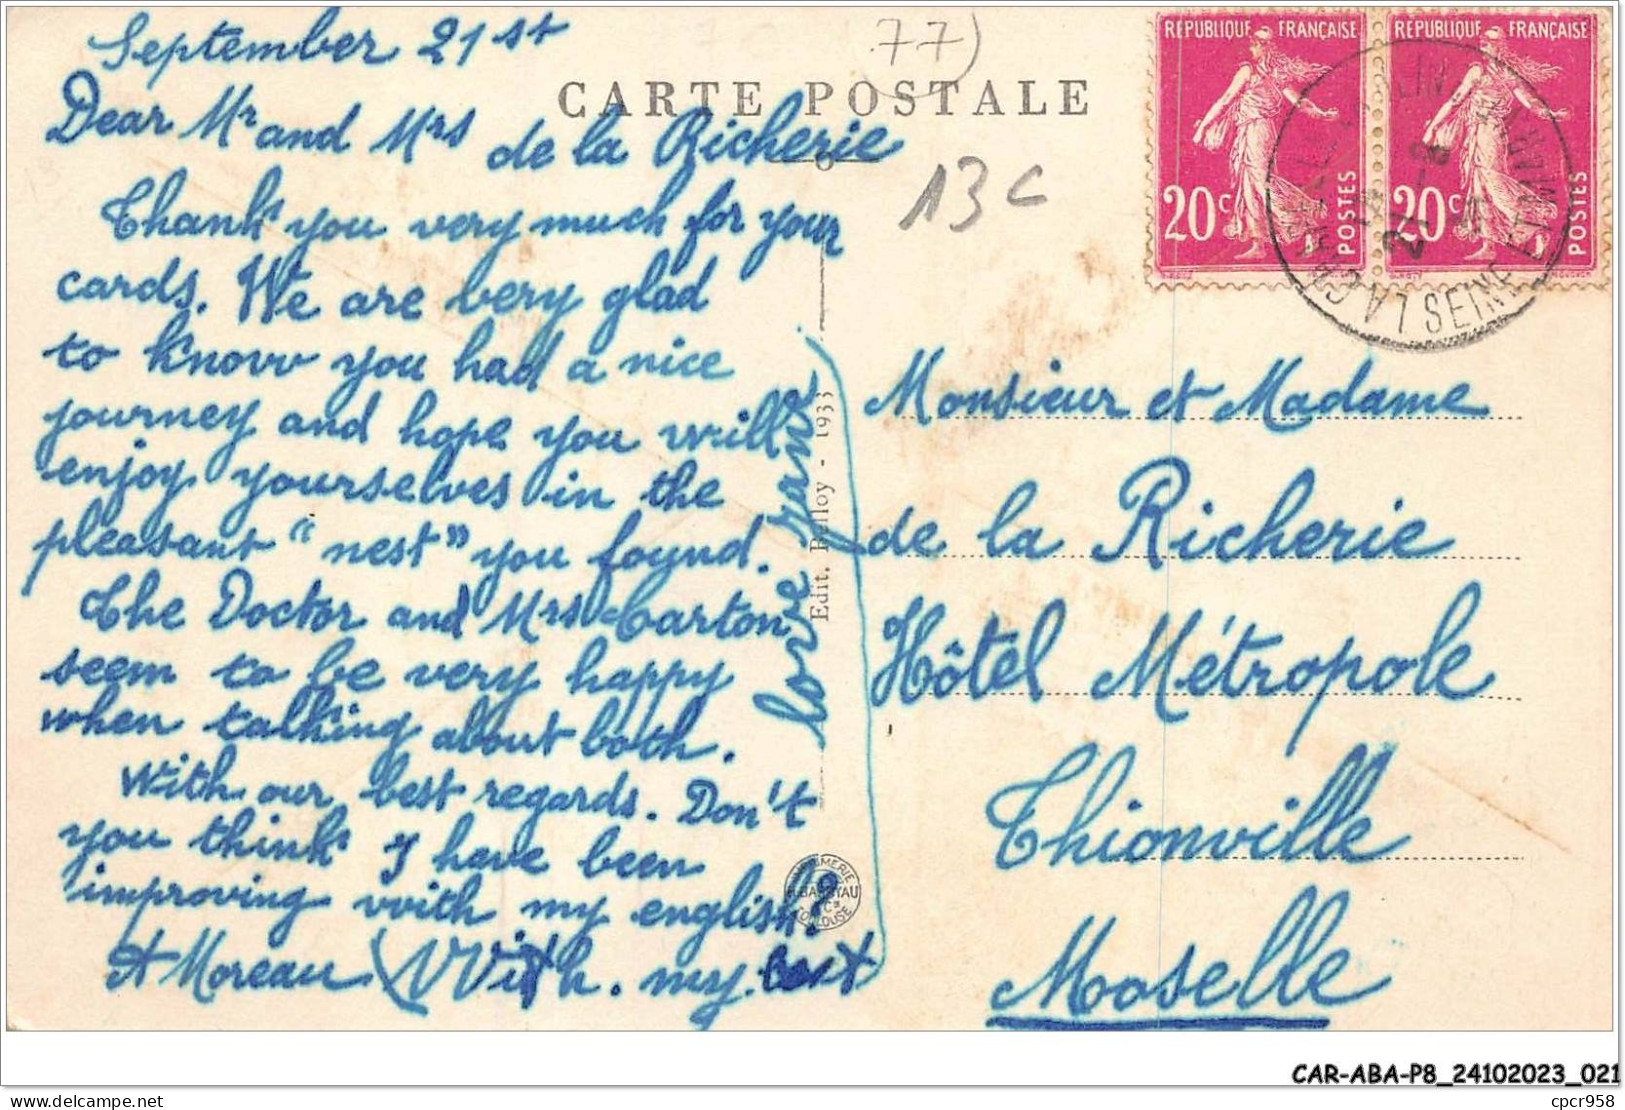 September 21st
77)
CARTE POSTALE
Dear Mr and Mrs de la Richerie
13c
Thank you very much for your
cards. We are very glad
to know you had a nice
journey and hope you will
enjoy yourselves in the
pleasant "nest" you found.
The Doctor and Mrs Carton
seem to be very happy
when talking about both.
With our best regards. Don't
you think I have been
improving with my english?
A Moreau (With my best
love
Edit. - 1933
IMPRIMERIE
TOULOUSE
RÉPUBLIQUE FRANÇAISE
20c
POSTES
RÉPUBLIQUE FRANÇAISE
20c
POSTES
SEINE ET MARNE
Monsieur et Madame
de la Richerie
Hôtel Métropole
Thionville
Moselle
CAR-ABA-P8_24102023_021
delcampe.net
cpcr958